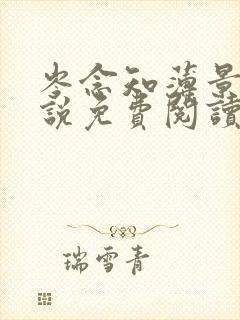 岑念知薄景
說免費閱讀
瑞雪青